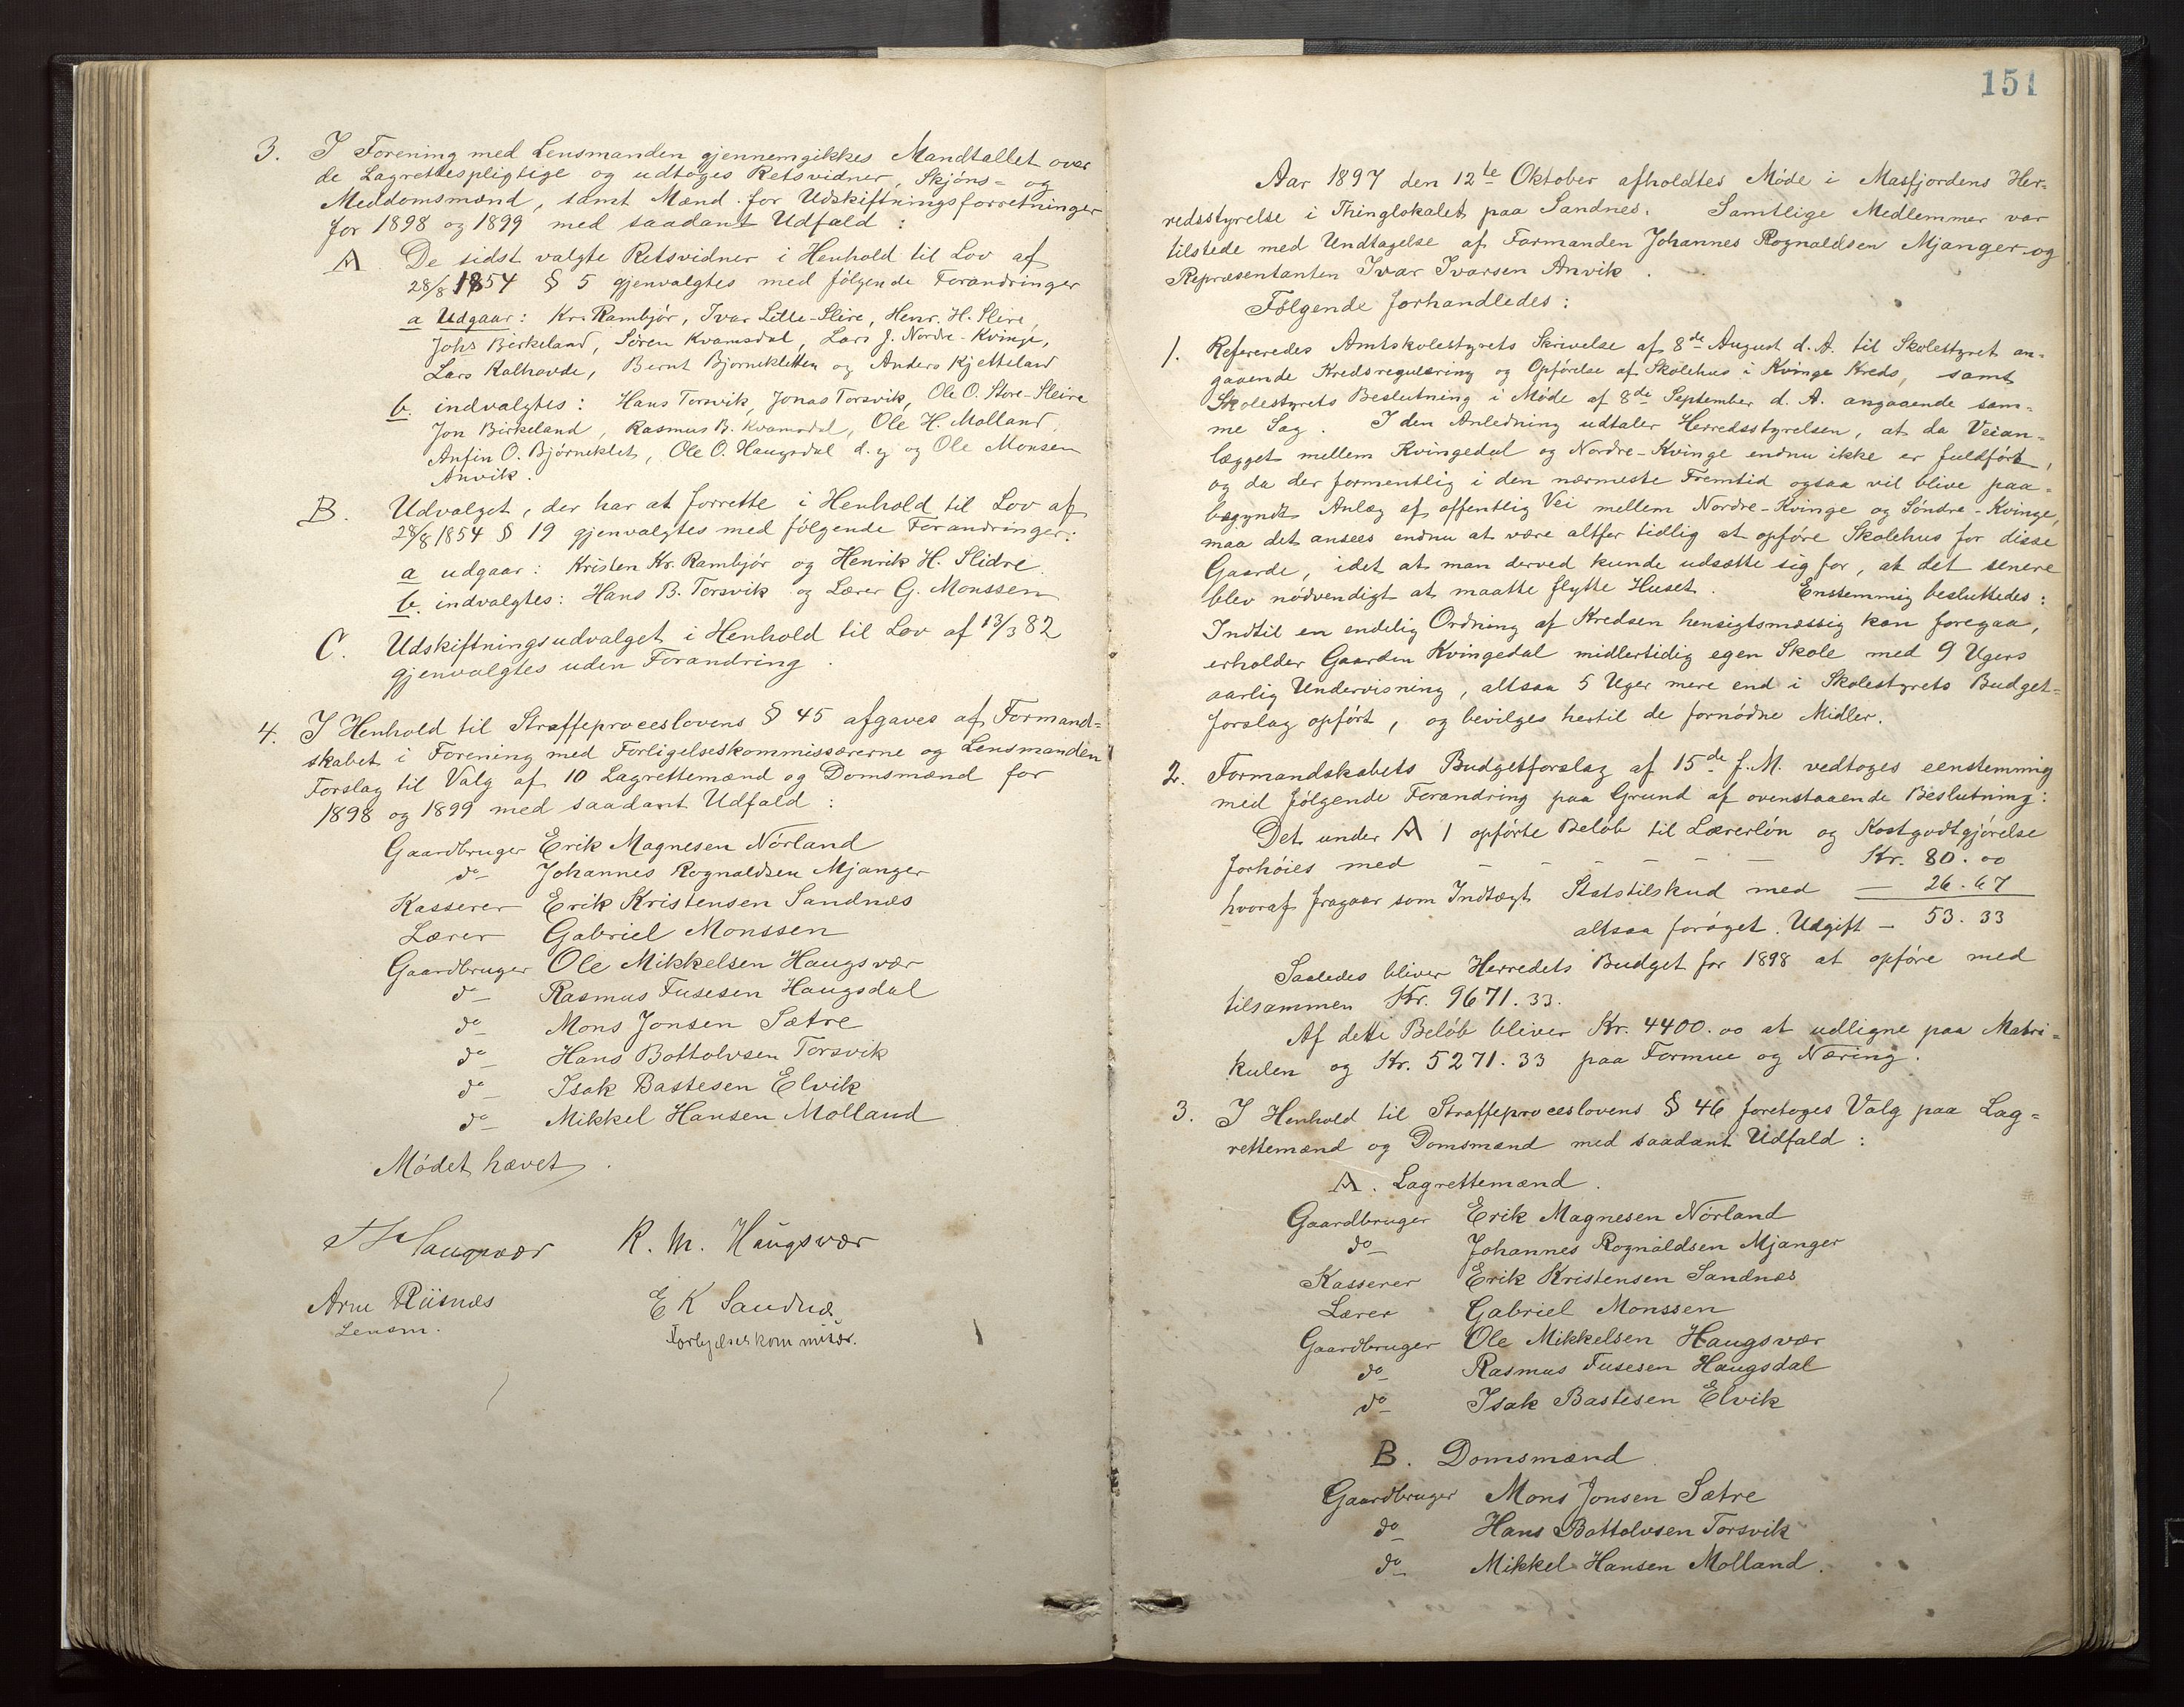 3. I Forening med Lensmanden gjennemgikkes Mandtallet over
de Lagrettespligtige og udtoges Retsvidner, Skjøns- og
Meddomsmænd, samt Mænd for Udskiftningsforretninger
for 1898 og 1899 med saadant Udfald:
A De sidst valgte Retsvidner i Henhold til Lov af
28/8 1854 § 5 gjenvalgtes med følgende Forandringer
a Udgaar: Kr. Rambjør, Ivar Litle-Slire, Henr. H. Slire,
Johs Birkeland, Søren Kvamsdal, Lars J. Nordre-Kvinge,
Lars Kalhovde, Bernt Bjørnekletten og Anders Kjetteland
b. indvalgtes: Hans Torsvik, Jonas Torsvik, Ole O. Store-Sleire
Jon Birkeland, Rasmus B. Kvamsdal, Ole H. Molland,
Anfin O. Bjørneklet, Ole O. Haugsdal d.y og Ole Monsen
Anvik.
B. Udvalget, der har at forrette i Henhold til Lov af
28/8 1854 § 19 gjenvalgtes med følgende Forandringer:
a udgaar: Kristen Kr. Rambjør og Henrik H. Slidre.
b. indvalgtes: Hans B. Torsvik og Lærer G. Monssen
C. Udskiftningsudvalget i Henhold til Lov af 13/3 82
gjenvalgtes uden Forandring.
4. I Henhold til Straffeproceslovens § 45 afgaves af Formand-
skabet i Forening med Forligelseskommissærerne og Lensmanden
Forslag til Valg af 10 Lagrettemænd og Domsmænd for
1898 og 1899 med saadant Udfald:
Gaardbruger Erik Magnesen Nørland
do Johannes Rognaldsen Mjanger
Kasserer Erik Kristensen Sandnæs
Lærer Gabriel Monssen
Gaardbruger Ole Mikkelsen Haugsvær
do Rasmus Fusesen Haugsdal
do Mons Jonsen Sætre
do Hans Bottolvsen Torsvik
do Isak Bastesen Elvik
do Mikkel Hansen Molland
Mødet hævet.
Haugsvær R. M. Haugsvær
Arne Riisnæs E K Sandnæs
Lensm. Forligelseskommisær.
151
Aar 1897 den 12te Oktober afholdtes Møde i Masfjordens Her-
redsstyrelse i Thinglokalet paa Sandnes. Samtlige Medlemmer var
tilstede med Undtagelse af Formanden Johannes Rognaldsen Mjanger og
Repræsentanten Ivar Ivarsen Anvik.
Følgende forhandledes:
1. Refereredes Amtskolestyrets Skrivelse af 8de August d. A. til Skolestyret an-
gaaende Kredsregulæring og Opførelse af Skolehus i Kvinge Kreds, samt
Skolestyrets Beslutning i Møde af 8de September d. A. angaaende sam-
me Sag. I den Anledning udtaler Herredsstyrelsen, at da Veian-
lægget mellem Kvingedal og Nordre-Kvinge endnu ikke er fuldført,
og da der formentlig i den nærmeste Fremtid ogsaa vil blive paa-
begyndt Anlæg af offentlig Vei mellem Nordre-Kvinge og Søndre-Kvinge,
maa det ansees endnu at være altfor tidlig at opføre Skolehus for disse
Gaarde, idet at man derved kunde udsætte sig for, at det senere
blev nødvendigt at maatte flytte Huset. Enstemmig besluttedes:
Indtil en endelig Ordning af Kredsen hensigtsmæssig kan foregaa,
erholder Gaarden Kvingedal midlertidig egen Skole med 9 Ugers
aarlig Undervisning, altsaa 5 Uger mere end i Skolestyrets Budget-
forslag opført, og bevilges hertil de fornødne Midler.
2. Formandskabets Budgetforslag af 15de f. M. vedtoges eenstemmig
med følgende Forandring paa Grund af ovenstaaende Beslutning:
Det under A 1 opførte Beløb til Lærerløn og Kostgodtgjørelse
forhøies med - - - - - - Kr. 80.00
hvoraf fragaar som Indtægt Statstilskud med — 26.67
altsaa forøget Udgift — 53.33
Saaledes bliver Herredets Budget for 1898 at opføre med
tilsammen Kr. 9671.33.
Af dette Beløb bliver Kr. 4400.00 at udligne paa Matri-
kulen og Kr. 5271.33 paa Formue og Næring.
3. I Henhold til Straffeproceslovens § 46 foretoges Valg paa Lag-
rettemænd og Domsmænd med saadant Udfald:
A. Lagrettemænd.
Gaardbruger Erik Magnesen Nørland
do Johannes Rognaldsen Mjanger
Kasserer Erik Kristensen Sandnæs
Lærer Gabriel Monssen
Gaardbruger Ole Mikkelsen Haugsvær
do Rasmus Fusesen Haugsdal
do Isak Bastesen Elvik
B. Domsmænd.
Gaardbruger Mons Jonsen Sætre
do Hans Bottolvsen Torsvik
do Mikkel Hansen Molland.